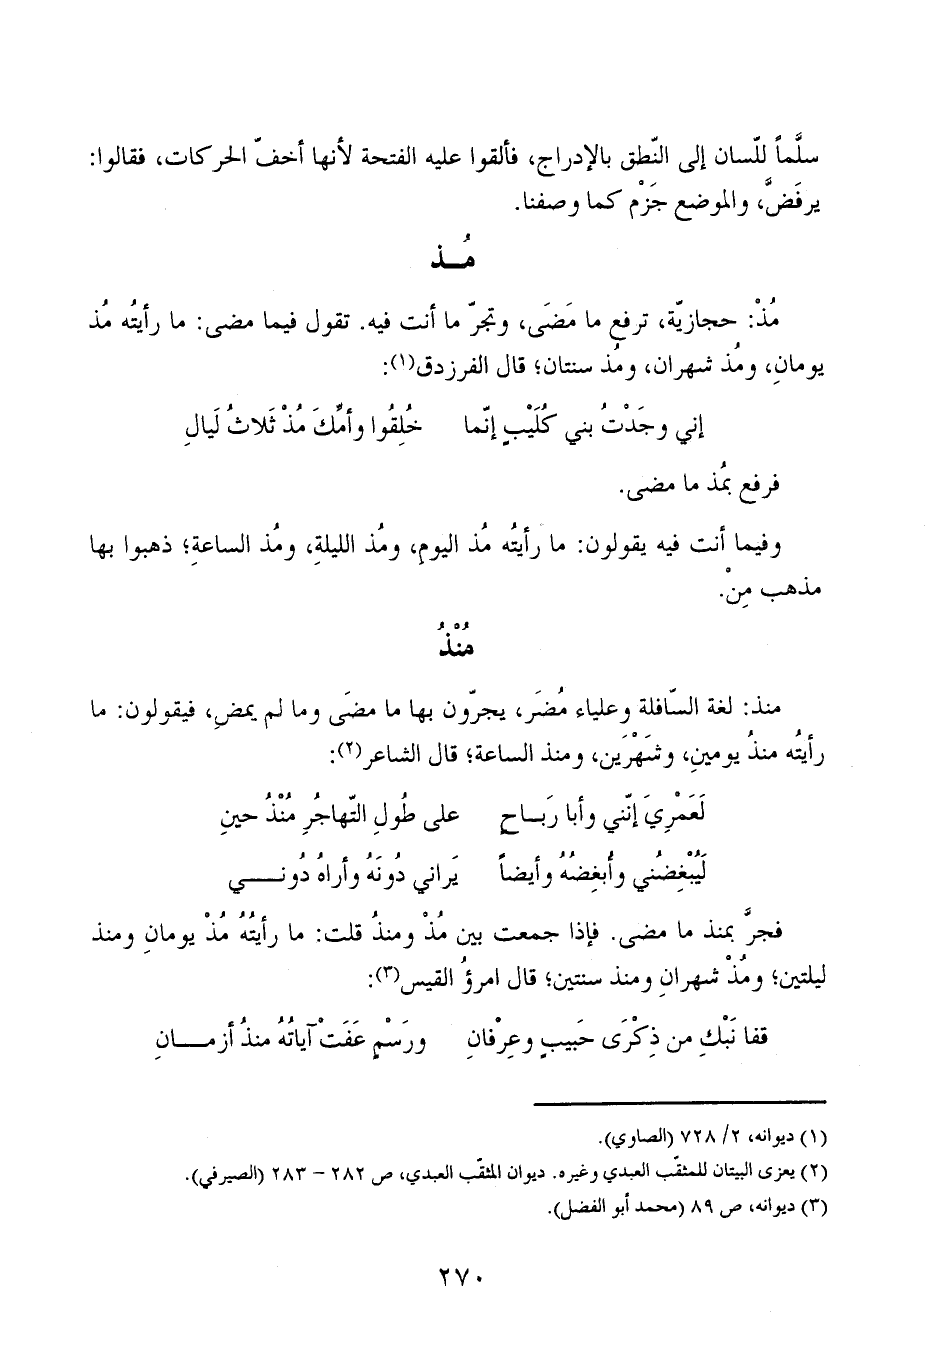 سلَّماً للّسان إلى النّطق بالإدراج، فألقوا عليه الفتحة لأنها أخفّ الحركات، فقالوا:
يرفَضَّ، والموضع جَزْم كما وصفنا.
مُـذ
مُذْ: حجازيّة، ترفع ما مَضَى، وتجرّ ما أنت فيه. تقول فيما مضى: ما رأيتُه مُذ
يومانِ، ومُذ شهران، ومُذ سنتان؛ قال الفرزدق(١):
إني وجَدْتُ بني كُلَيْبٍ إنّما خُلِقُوا وأمِّكَ مُذْ ثَلاثُ لَيالِ
فرفع بمُذ ما مضى.
وفيما أنت فيه يقولون: ما رأيتُه مُذ اليومِ، ومُذ الليلةِ، ومُذ الساعةِ؛ ذهبوا بها
مذهب مِنْ.
مُنْذُ
منذ: لغة السّافلة وعلياء مُضَر، يجرّون بها ما مضَى وما لم يمضِ، فيقولون: ما
رأيتُه منذُ يومينِ، وشَهْرَين، ومنذ الساعة؛ قال الشاعر(٢):
لَعَمْرِيَ إنّني وأبا رَبـاحٍ على طُولِ التّهاجُرِ مُنْذُ حينِ
لَيُبْغِضُني وأُبغِضُهُ وأيضاً يَراني دُونَهُ وأراهُ دُونـــي
فجرَّ بمنذ ما مضى. فإذا جمعت بين مُذْ ومنذُ قلت: ما رأيتُهُ مُذْ يومانِ ومنذ
ليلتين؛ ومُذْ شهرانِ ومنذ سنتين؛ قال امرؤُ القيس(٣):
قفا نَبْكِ من ذِكْرَى حَبيبٍ وعِرْفانِ ورَسْمٍ عَفَتْ آياتُهُ منذُ أزمـــانِ
(١) ديوانه، ٢/ ٧٢٨ (الصاوي).
(٢) يعزى البيتان للمثقّب العبدي وغيره. ديوان المثقّب العبدي، ص ٢٨٢ – ٢٨٣ (الصيرفي).
(٣) ديوانه، ص ٨٩ (محمد أبو الفضل).
٢٧٠